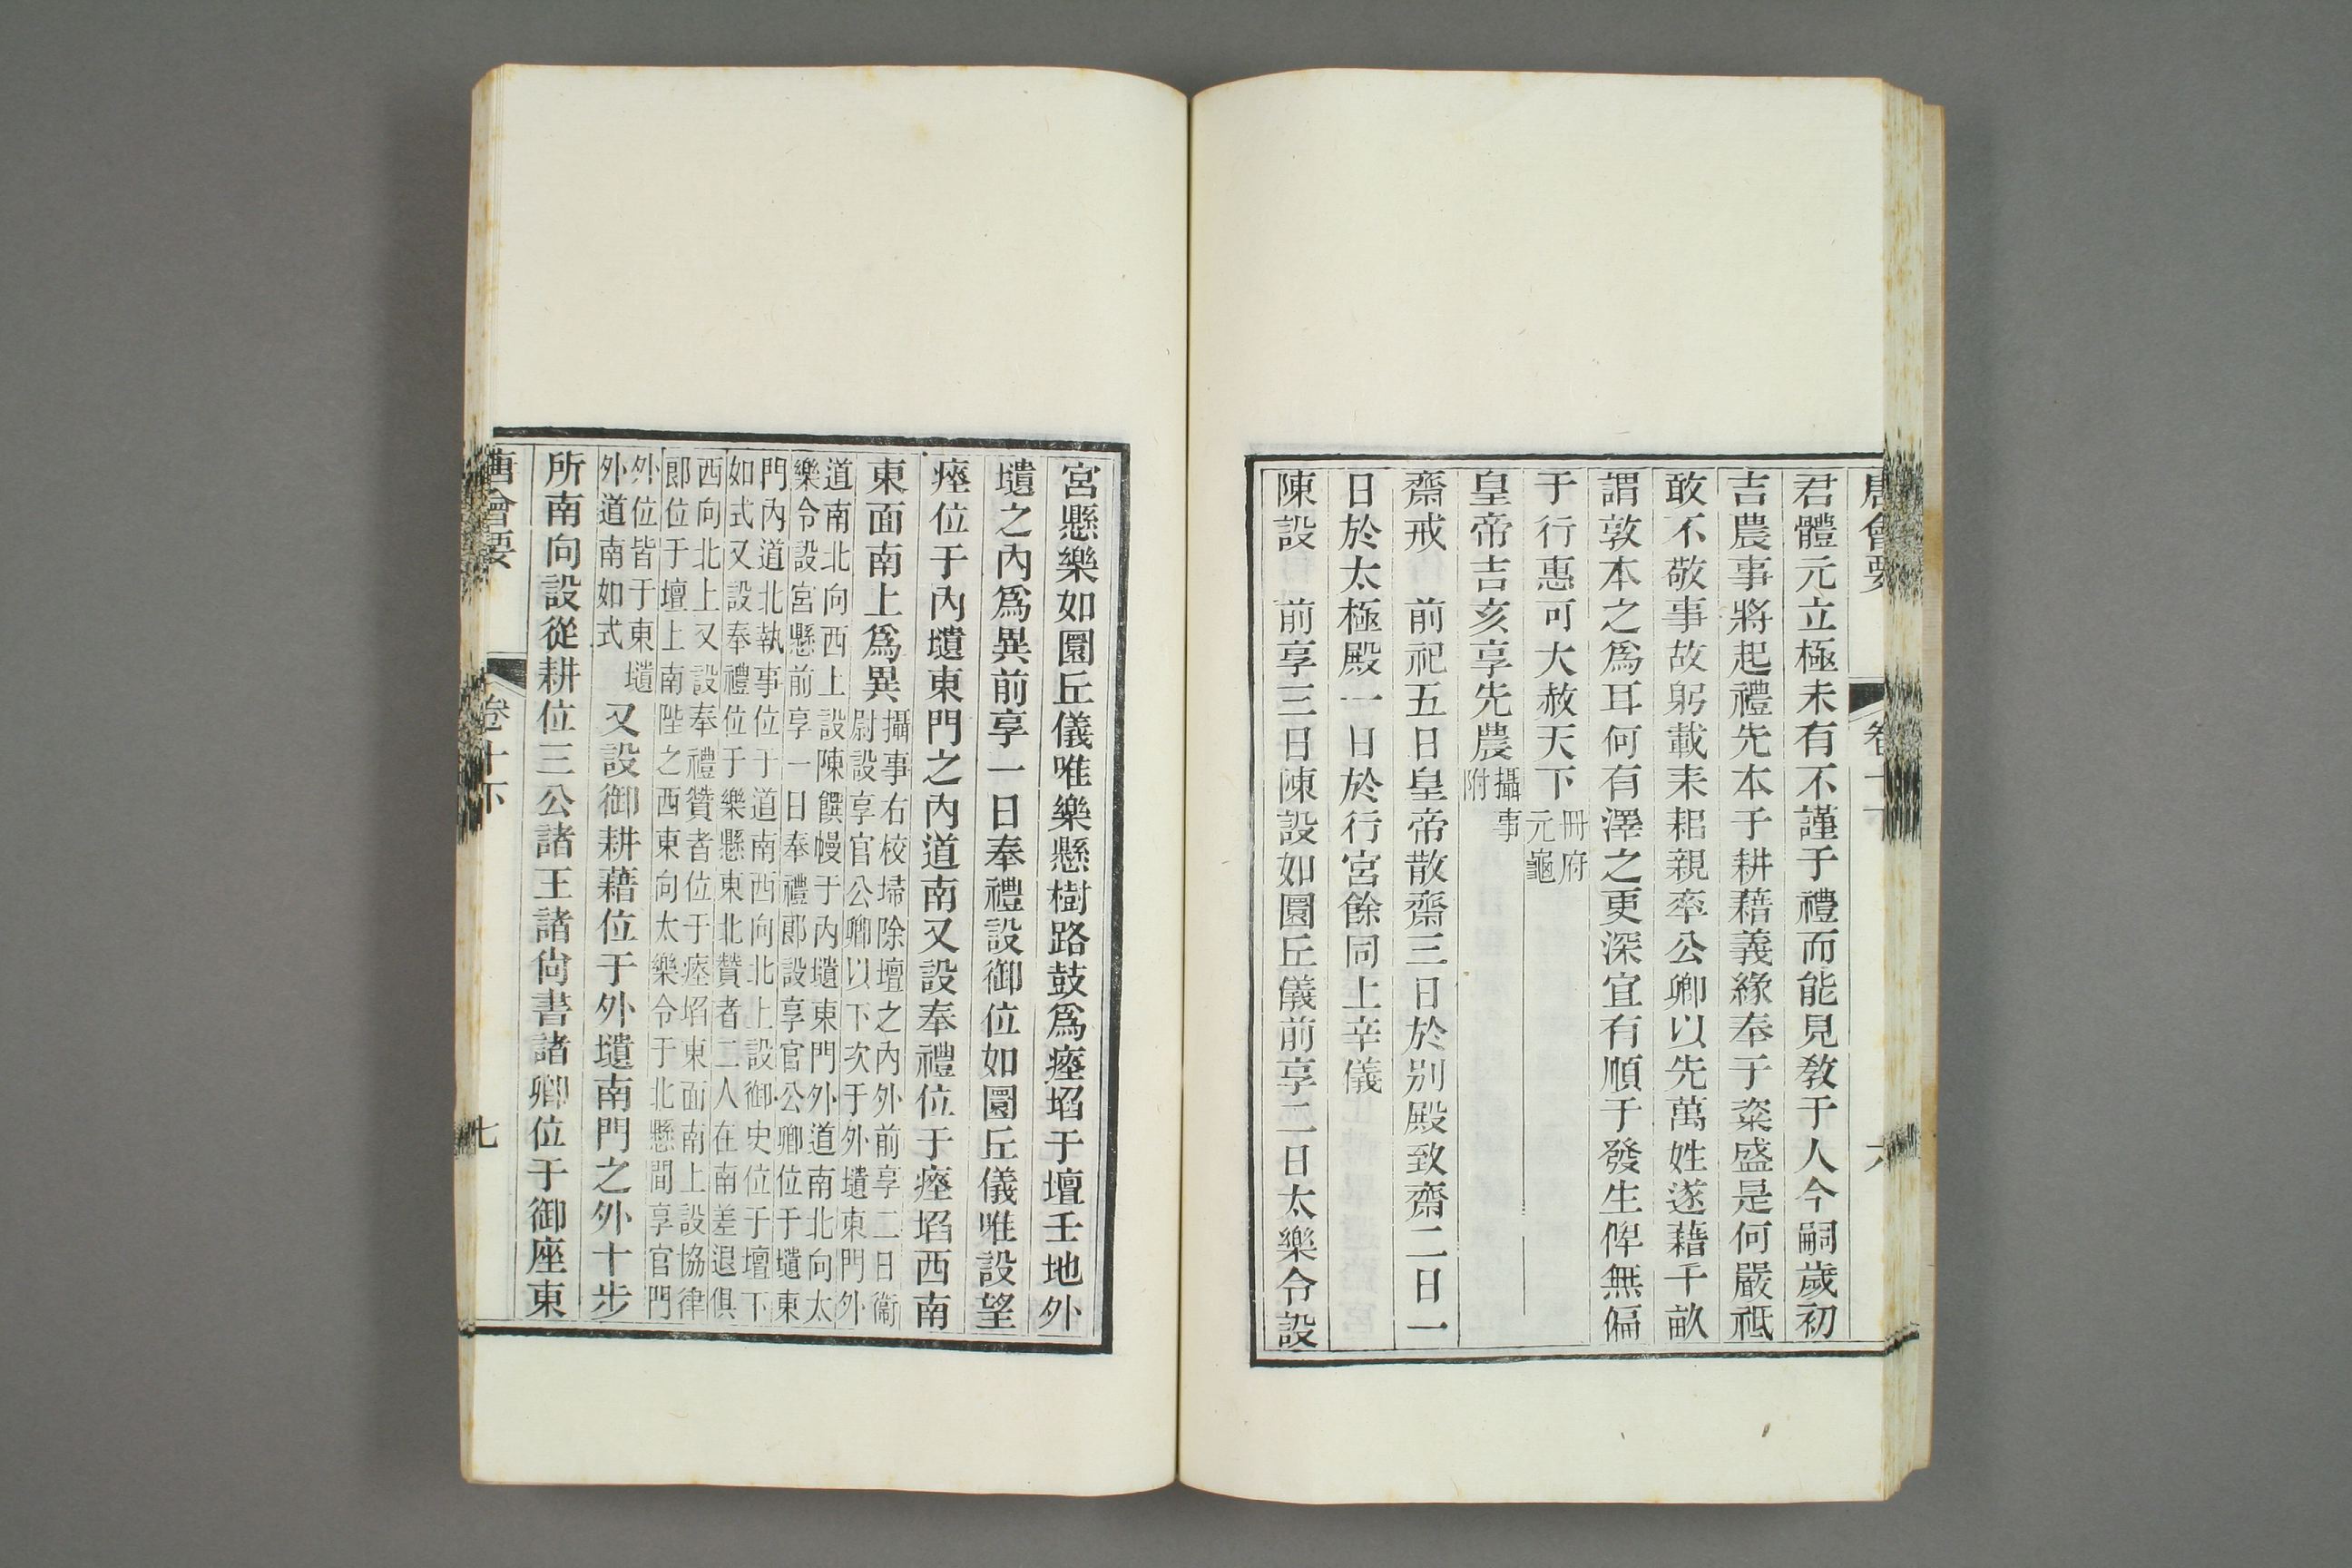 唐會要　卷十下　六
君體元立極未有不謹于禮而能見教于人今嗣歲初
吉農事將起禮先本于耕藉義緣奉于粢盛是何嚴祗
敢不敬事故躬載耒耜親率公卿以先萬姓遂藉千畝
謂敦本之爲耳何有澤之更深宜有順于發生俾無偏
于行惠可大赦天下冊府元龜
皇帝吉亥享先農攝事附
齋戒　前祀五日皇帝散齋三日於別殿致齋二日一
日於太極殿一日於行宮餘同上辛儀
陳設　前享三日陳設如圜丘儀前享二日太樂令設
宮懸樂如圜丘儀唯樂懸樹路鼓爲瘞埳于壇壬地外
壝之內爲異前享一日奉禮設御位如圜丘儀唯設望
瘞位于內壝東門之內道南又設奉禮位于瘞埳西南
東面南上爲異攝事右校埽除壇之內外前享二日衞
尉設享官公卿以下次于外壝東門外
道南北向西上設陳饌幔于內壝東門外道南北向太
樂令設宮懸前享一日奉禮郎設享官公卿位于壝東
門內道北執事位于道南西向北上設御史位于壇下
如式又設奉禮位于樂懸東北贊者二人在南差退俱
西向北上又設奉禮贊者位于瘞埳東面南上設協律
郎位于壇上南陛之西東向太樂令于北懸間享官門
外位皆于東壝
外道南如式
又設御耕藉位于外壝南門之外十步
所南向設從耕位三公諸王諸尙書諸卿位于御座東
唐會要　卷十下　七